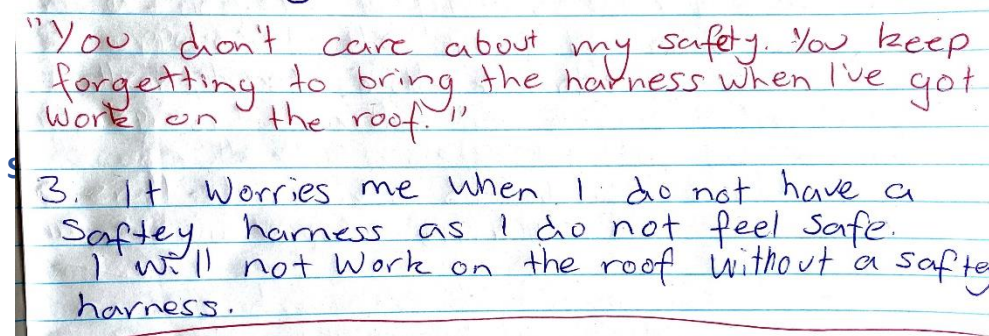 "You don't care about my safety. You keep
forgetting to bring the harness when I've got
work on the roof."
3. It worries me when I do not have a
Saftey harness as I do not feel safe.
I will not work on the roof without a safte
harness.